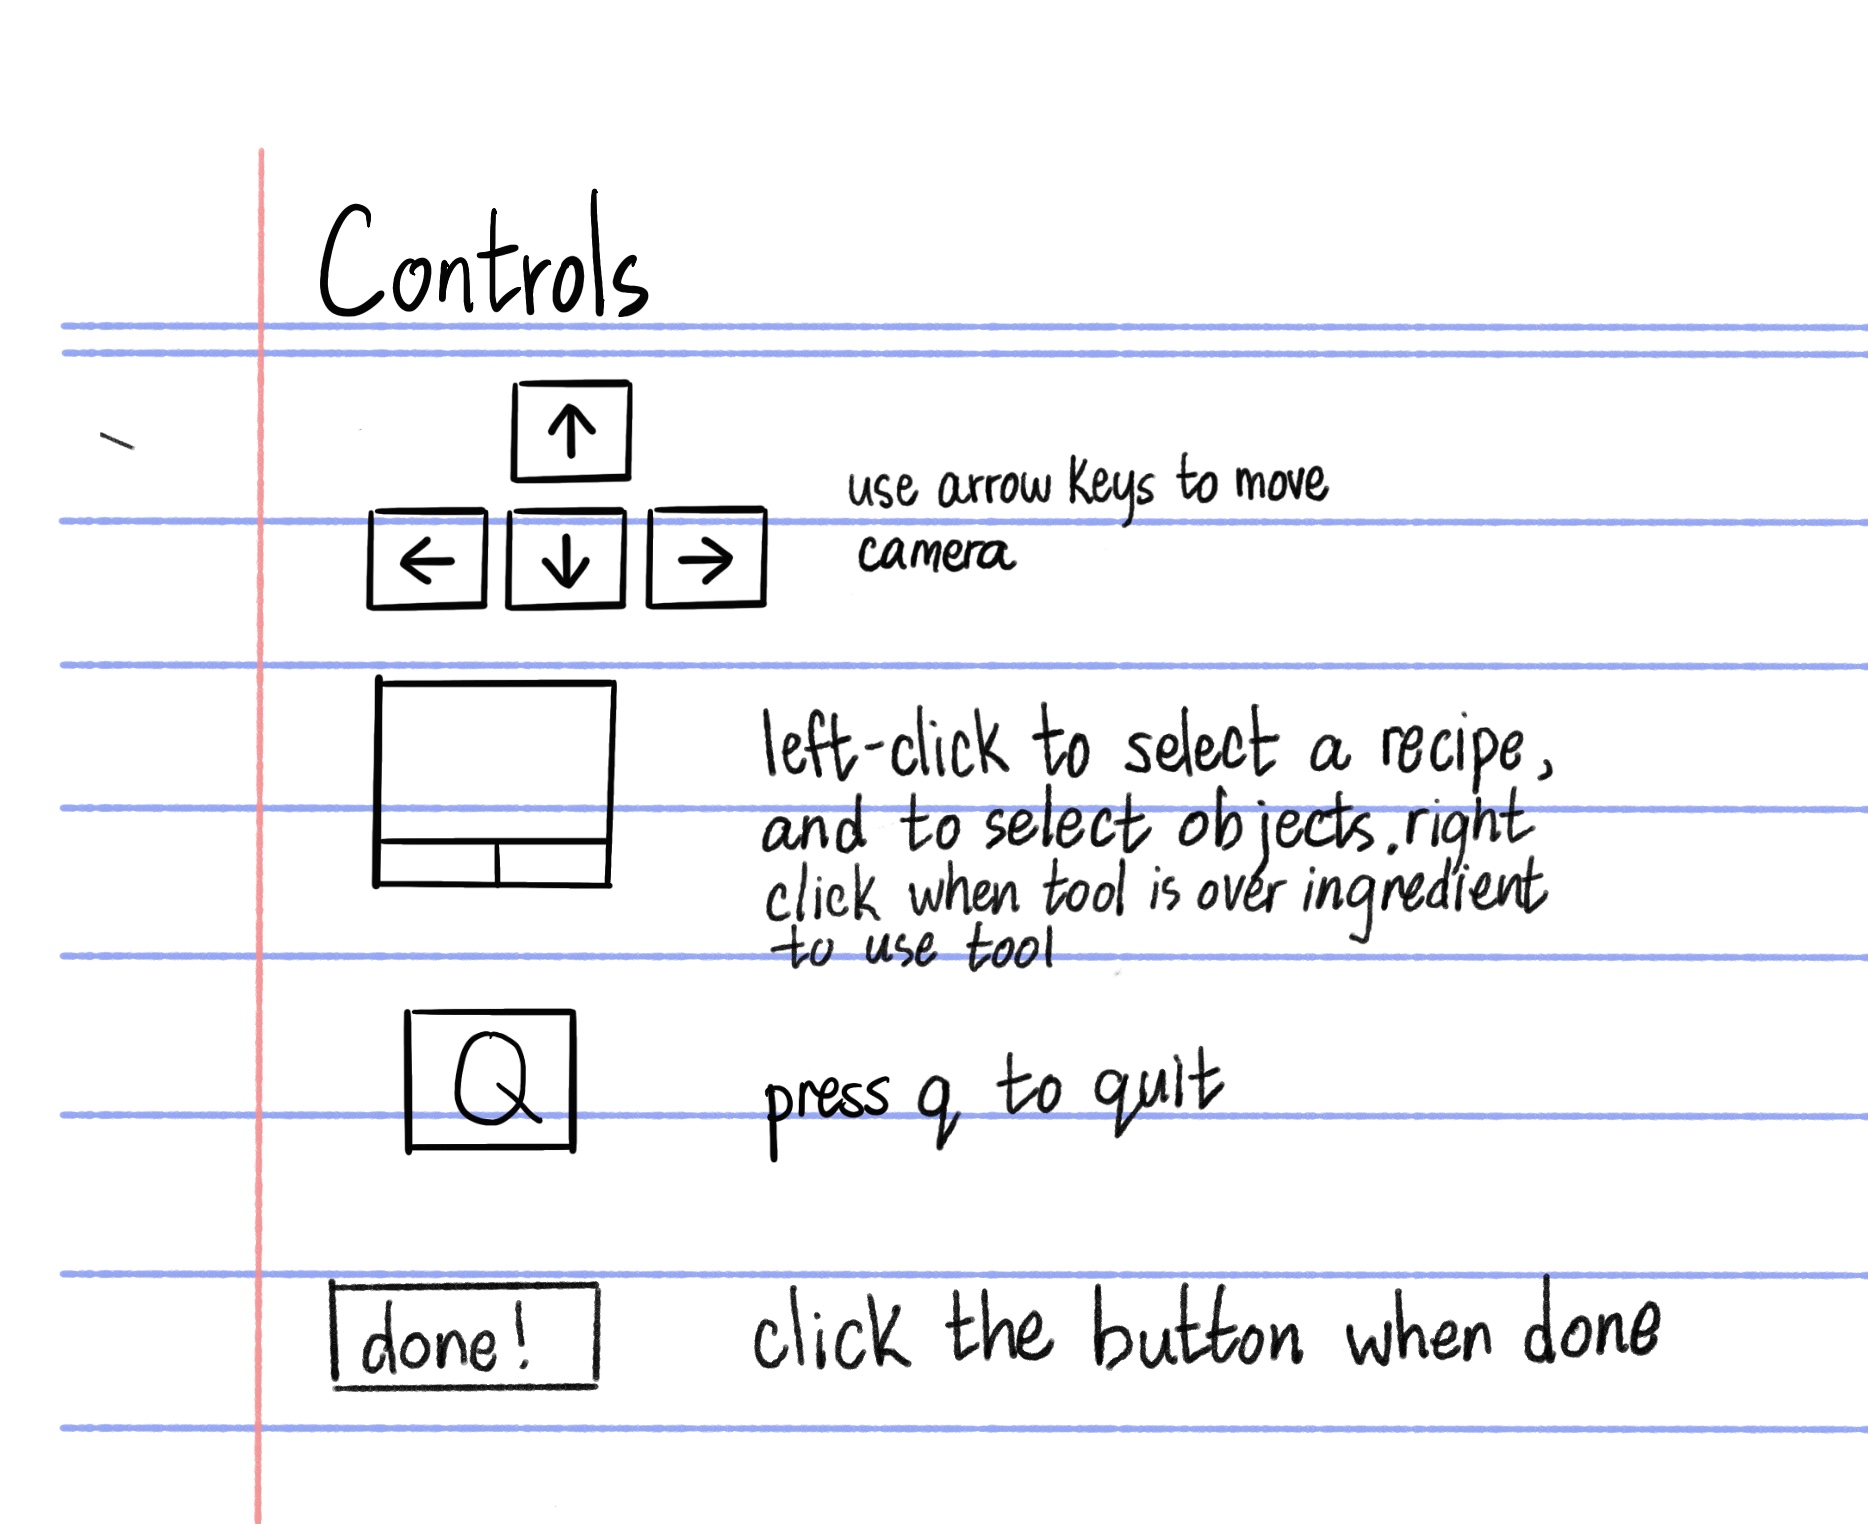 Controls
↑
← ↓ →
use arrow keys to move
camera
left-click to select a recipe,
and to select objects. right
click when tool is over ingredient
to use tool
Q
press q to quit
done!
click the button when done